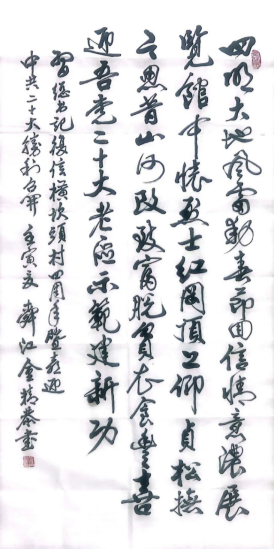 四明大地风雷动春节回信情意浓展
览馆中怀烈士红阁顶上仰贞松抚
今思昔山河改致富脱贫衣食丰喜
迎吾党二十大老区示范建新功
习总书记复信横坎头村四周年暨喜迎
中共二十大胜利召开 壬寅夏 龚江金精恭书